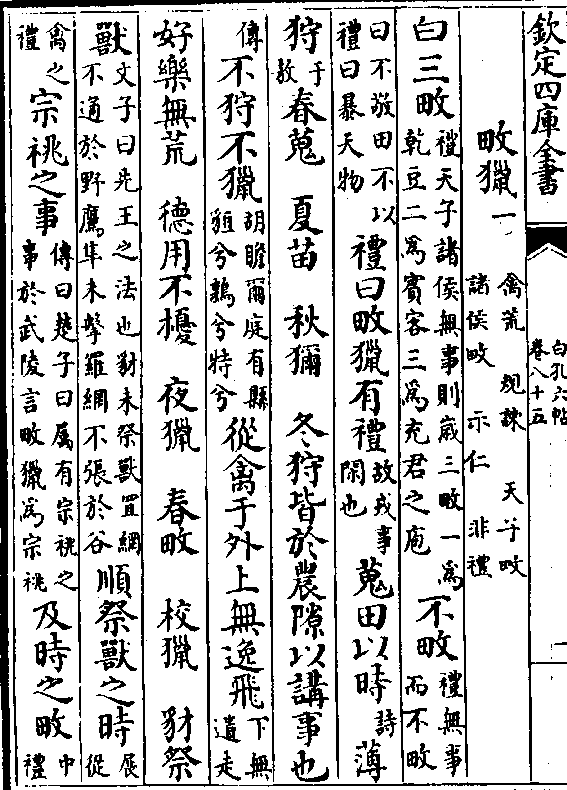 欽定四庫全書
白孔六帖
卷八十五
一
畋獵一
禽荒 規諫 天子畋
諸侯畋 示仁 非禮
白三畋 禮天子諸侯無事則歲三畋一為乾豆二為賓客三為充君之庖 不畋 禮無事而不畋
曰不敬田不以禮曰暴天物 禮曰畋獵有禮 故戎事閑也 蒐田以時 詩薄
狩于敖 春蒐 夏苗 秋獮 冬狩皆於農隙以講事也
傳 不狩不獵 胡瞻爾庭有縣狟兮鶉兮特兮 從禽于外上無逸飛 下無遺走
好樂無荒 德用不擾 夜獵 春畋 校獵 豺祭
獸 文子曰先王之法也豺未祭獸罝網不通於野鷹隼未擊羅網不張於谷 順祭獸之時 展從
禽之禮 宗祧之事 傳曰楚子曰属有宗祧之事於武陵言畋獵為宗祧 及時之畋 中禮